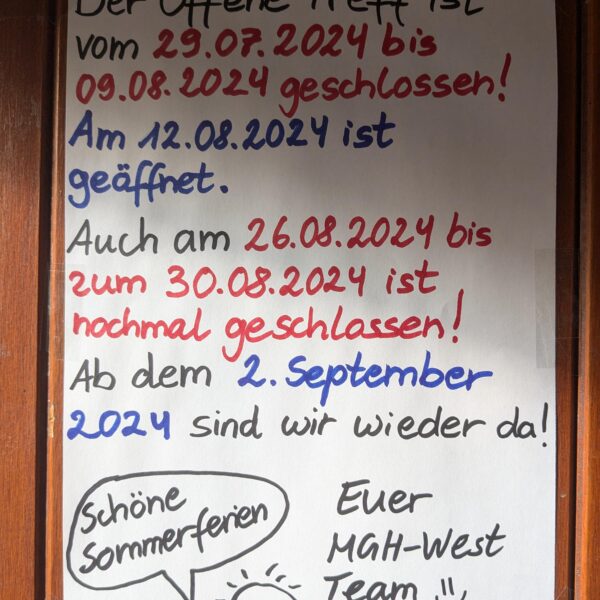 Der Offene Treff ist
vom 29.07.2024 bis
09.08.2024 geschlossen!
Am 12.08.2024 ist
geäffnet.
Auch am 26.08.2024 bis
zum 30.08.2024 ist
nochmal geschlassen!
Ab dem 2. September
2024 sind wir wieder da!
Schöne
Sommerferien
Euer
MGH-West
Team